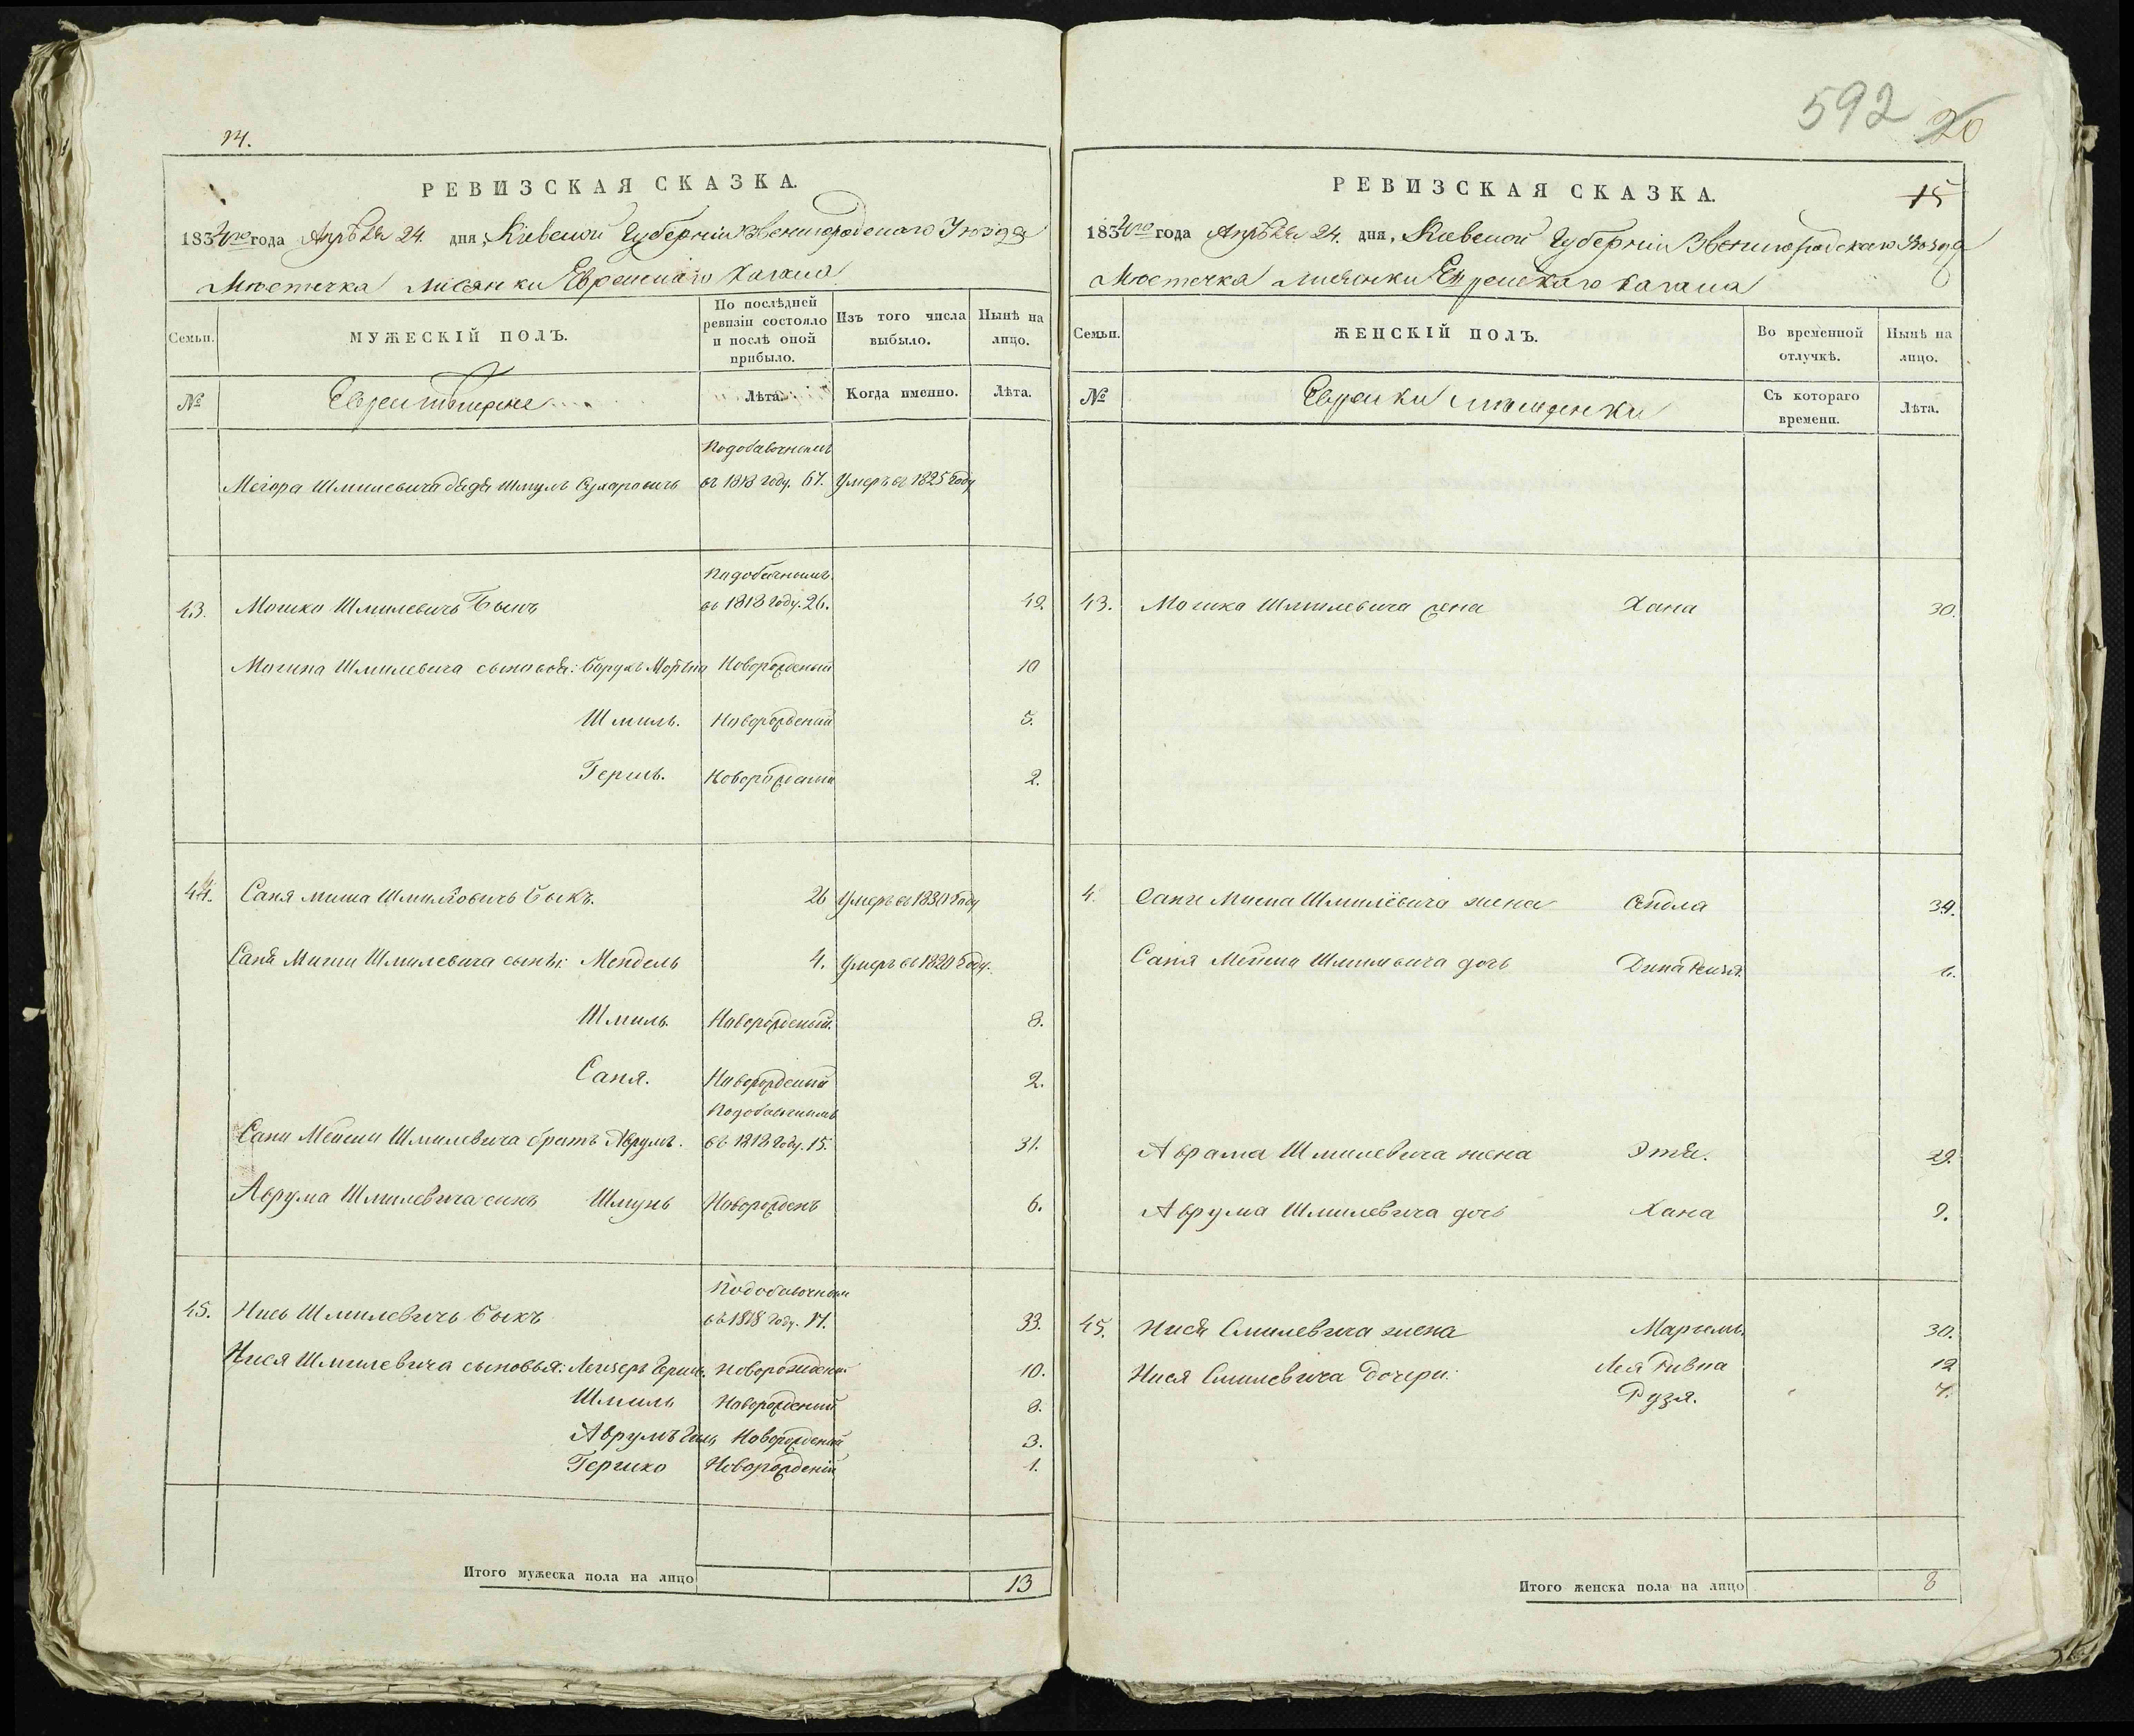 14.
РЕВИЗСКАЯ СКАЗКА.
1834го года Апрѣля 24. дня, Кіевской Губерніи Звенигородскаго Уѣзда
Мѣстечка Лисянки Еврейскаго Кагала
Семьи.
МУЖЕСКІЙ ПОЛЪ.
По послѣдней ревизіи состояло и послѣ оной прибыло.
Изъ того числа выбыло.
Нынѣ на лицо.
№
Евреи мѣщане
Лѣта.
Когда именно.
Лѣта.
Подобавочнымъ
Шмилевича дядя Шмуль въ 1818 году. 67. Умеръ въ 1825 году
Подобавочнымъ
43. Мошко Шмилевичь Быкъ въ 1818 году. 26. 42.
Мошка Шмилевича сыновья: Борухъ Новорожденый 10
Шмиль. Новорожденый 5.
Гершь. Новорожденый 2.
44. Саня Шмилевичь Быкъ. 26 Умеръ въ 1830 году
Шмилевича сынъ: Мендель 4. Умеръ въ 1820 году.
Шмиль. Новорожденый. 8.
Саня. Новорожденый 2.
Подобавочнымъ
Сани Шмилевича братъ Аврумъ. въ 1818 году. 15. 31.
Аврума Шмилевича сынъ Новорожденъ 6.
Подобавочным
45. Нись Шмилевичь Быкъ въ 1818 году. 17. 33.
Нися Шмилевича сыновья: Лейзеръ Гершь. новорожден. 10.
Шмиль Новорожденый 8.
Аврумъ Новорожденый 3.
Гершко Новорожденій 1.
Итого мужеска пола на лицо 13
592 20
15
РЕВИЗСКАЯ СКАЗКА.
1834го года Апрѣля 24. дня, Кіевской Губерніи Звенигородскаго Уѣзда
Мѣстечка Лисянки Еврейскаго Кагала
Семьи.
ЖЕНСКІЙ ПОЛЪ.
Во временной отлучкѣ.
Нынѣ на лицо.
№
Еврейки мѣщанки
Съ котораго времени.
Лѣта.
43. Мошка Шмилевича жена Хана 30.
4. Шмилевича жена 39.
Саня Шмилевича дочь 6.
Аврама Шмилевича жена Этя. 29.
Аврума Шмилевича дочь Хана 9.
45. Нися Смилевича жена Марьемъ. 30.
Нися Смилевича дочери: Лея Ривка 12
Рузя. 7.
Итого женска пола на лицо 8